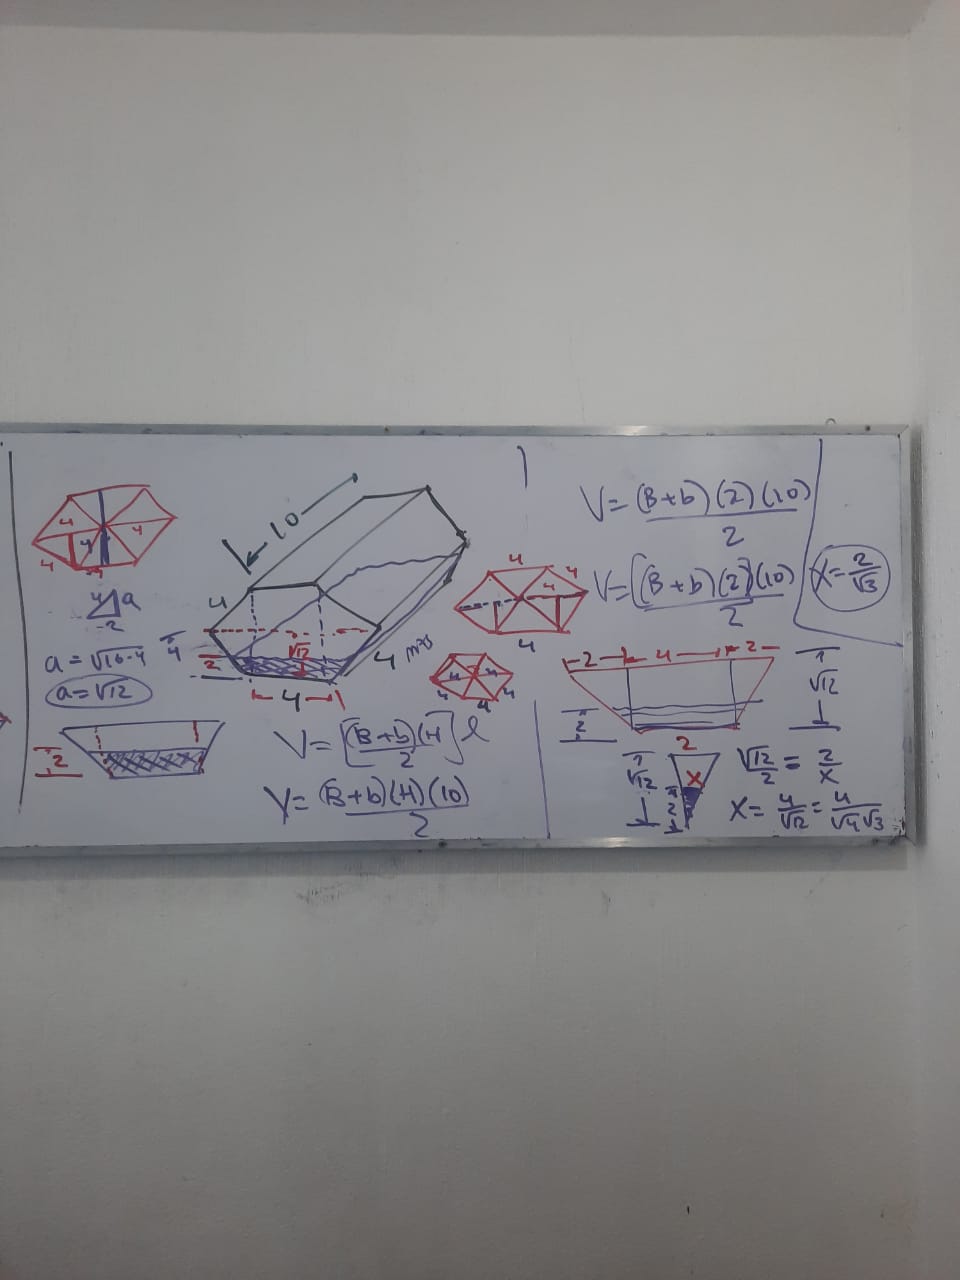 4
4
4
4
4
4
2
a
a = √16-4
a = √12
2
10
4
4
2
√12
4
4 mts
V = [(B+b)(H)/2] l
V = (B+b)(H)(10)/2
4
4
4
4
4
4
4
4
4
V = (B+b)(2)(10)/2
V = [(B+b)(2)](10)/2
X = 2/√3
2 4 2
√12
2
2
√12
X
2
√12/2 = 2/X
X = 4/√12 = 4/√4√3